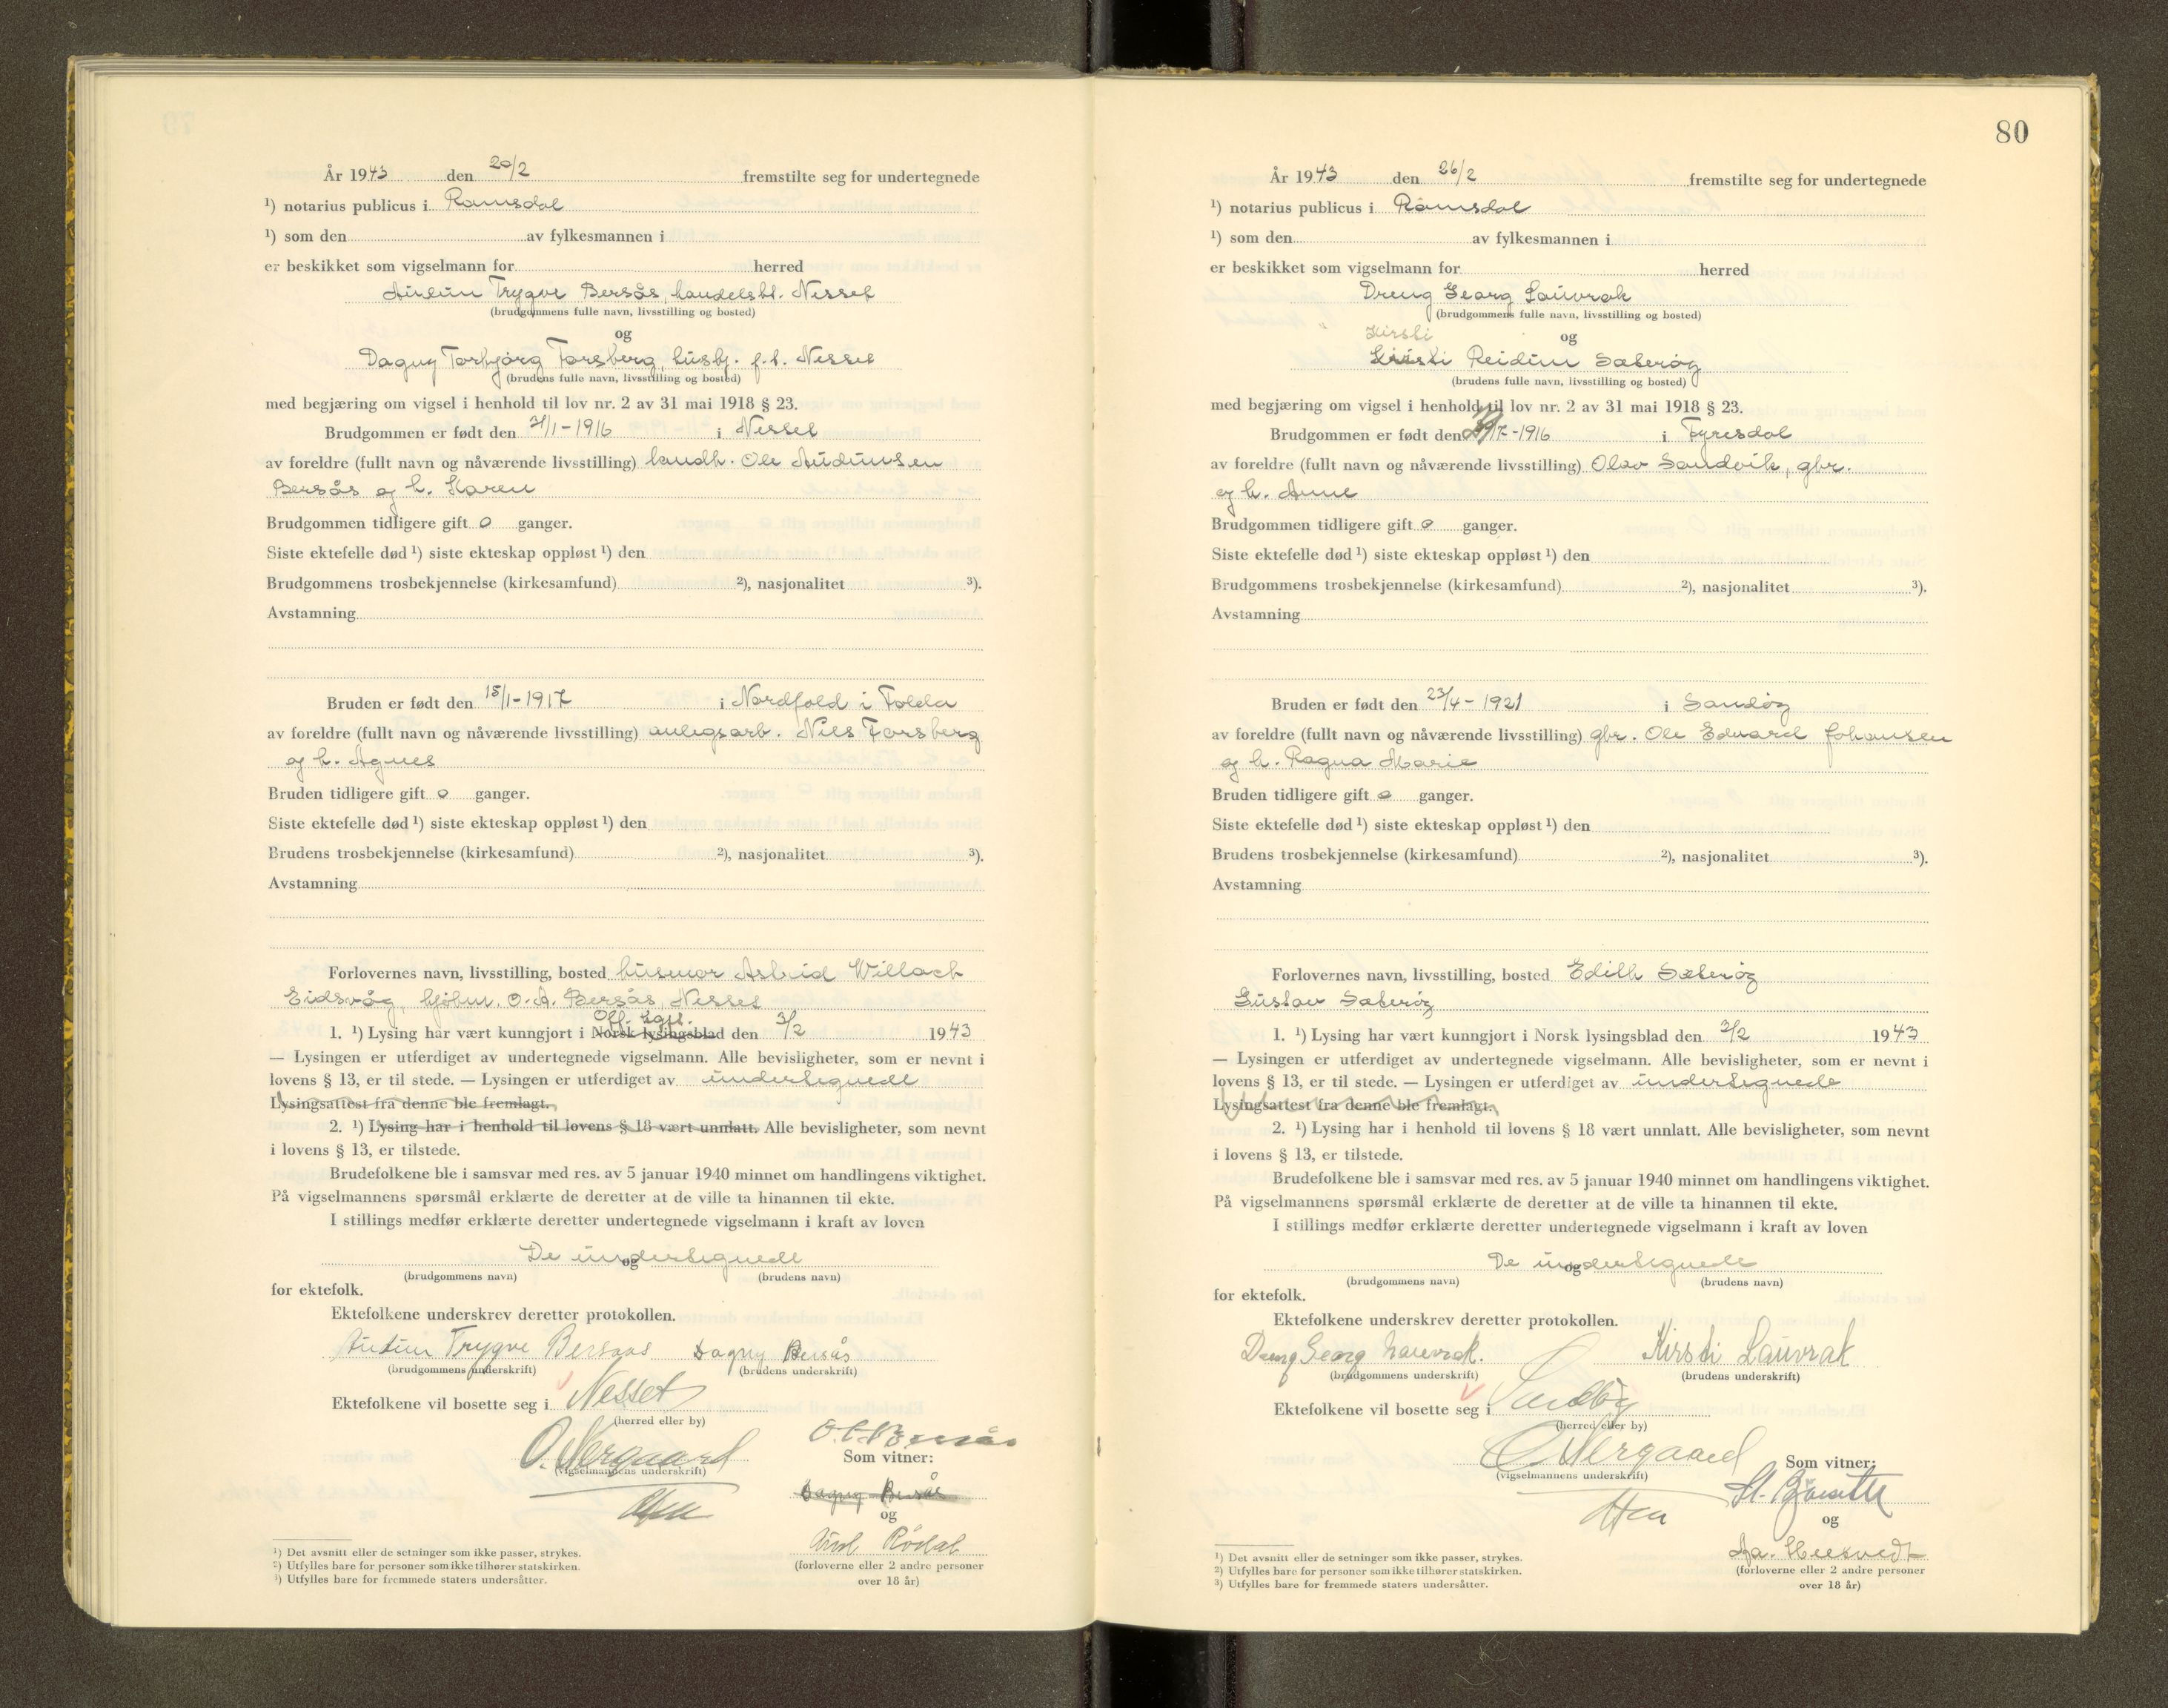 År 1943 den 20/2 fremstilte seg for undertegnede
¹) notarius publicus i Romsdal
¹) som den av fylkesmannen i
er beskikket som vigselmann for herred
Audun Trygve Bersås, handelsbt. Nesset
(brudgommens fulle navn, livsstilling og bosted)
og
Dagny Torbjørg Forsberg, husbj. f.t. Nesset
(brudens fulle navn, livsstilling og bosted)
med begjæring om vigsel i henhold til lov nr. 2 av 31 mai 1918 § 23.
Brudgommen er født den 21/1-1916 i Nesset
av foreldre (fullt navn og nåværende livsstilling) handh. Ole Audunsen
Bersås og h. Karen
Brudgommen tidligere gift 0 ganger.
Siste ektefelle død ¹) siste ekteskap oppløst ¹) den
Brudgommens trosbekjennelse (kirkesamfund) ²), nasjonalitet ³).
Avstamning
Bruden er født den 15/1-1917 i Nordfold i Folda
av foreldre (fullt navn og nåværende livsstilling) anlegsarb. Nils Forsberg
og h. Agnes
Bruden tidligere gift 0 ganger.
Siste ektefelle død ¹) siste ekteskap oppløst ¹) den
Brudens trosbekjennelse (kirkesamfund) ²), nasjonalitet ³).
Avstamning
Forlovernes navn, livsstilling, bosted husmor Astrid Willoch
Eidsvåg, kjøbm. O. A. Bersås, Nesset
Off. kgjl.
1. ¹) Lysing har vært kunngjort i Norsk lysingsblad den 3/2 1943
— Lysingen er utferdiget av undertegnede vigselmann. Alle bevisligheter, som er nevnt i
lovens § 13, er til stede. — Lysingen er utferdiget av undertegnede
Lysingsattest fra denne ble fremlagt.
2. ¹) Lysing har i henhold til lovens § 18 vært unnlatt. Alle bevisligheter, som nevnt
i lovens § 13, er tilstede.
Brudefolkene ble i samsvar med res. av 5 januar 1940 minnet om handlingens viktighet.
På vigselmannens spørsmål erklærte de deretter at de ville ta hinannen til ekte.
I stillings medfør erklærte deretter undertegnede vigselmann i kraft av loven
De undertegnede
og
(brudgommens navn) (brudens navn)
for ektefolk.
Ektefolkene underskrev deretter protokollen.
Audun Trygve Bersaas Dagny Bersås
(brudgommens underskrift) (brudens underskrift)
Ektefolkene vil bosette seg i Nesset
(herred eller by)
O. A. Bersås
O. Nergaard Som vitner:
(vigselmannens underskrift)
Dagny Bersås
og
Rødal
(forloverne eller 2 andre personer
over 18 år)
¹) Det avsnitt eller de setninger som ikke passer, strykes.
²) Utfylles bare for personer som ikke tilhører statskirken.
³) Utfylles bare for fremmede staters undersåtter.
80
År 1943 den 26/2 fremstilte seg for undertegnede
¹) notarius publicus i Romsdal
¹) som den av fylkesmannen i
er beskikket som vigselmann for herred
Dreng Georg Lauvrak
(brudgommens fulle navn, livsstilling og bosted)
Kirsti
og
Kirsti Reidun Sæterøy
(brudens fulle navn, livsstilling og bosted)
med begjæring om vigsel i henhold til lov nr. 2 av 31 mai 1918 § 23.
Brudgommen er født den /7-1916 i Fyresdal
av foreldre (fullt navn og nåværende livsstilling) Olav Sandvik, gbr.
og h. Anne
Brudgommen tidligere gift 0 ganger.
Siste ektefelle død ¹) siste ekteskap oppløst ¹) den
Brudgommens trosbekjennelse (kirkesamfund) ²), nasjonalitet ³).
Avstamning
Bruden er født den 23/4-1921 i Sandøy
av foreldre (fullt navn og nåværende livsstilling) gbr. Ole Edvard Johansen
og h. Ragna Marie
Bruden tidligere gift 0 ganger.
Siste ektefelle død ¹) siste ekteskap oppløst ¹) den
Brudens trosbekjennelse (kirkesamfund) ²), nasjonalitet ³).
Avstamning
Forlovernes navn, livsstilling, bosted Edith Sæterøy
Gustav Sæterøy
1. ¹) Lysing har vært kunngjort i Norsk lysingsblad den 2/2 1943
— Lysingen er utferdiget av undertegnede vigselmann. Alle bevisligheter, som er nevnt i
lovens § 13, er til stede. — Lysingen er utferdiget av undertegnede
Lysingsattest fra denne ble fremlagt.
2. ¹) Lysing har i henhold til lovens § 18 vært unnlatt. Alle bevisligheter, som nevnt
i lovens § 13, er tilstede.
Brudefolkene ble i samsvar med res. av 5 januar 1940 minnet om handlingens viktighet.
På vigselmannens spørsmål erklærte de deretter at de ville ta hinannen til ekte.
I stillings medfør erklærte deretter undertegnede vigselmann i kraft av loven
De undertegnede
og
(brudgommens navn) (brudens navn)
for ektefolk.
Ektefolkene underskrev deretter protokollen.
Dreng Georg Lauvrak. Kirsti Lauvrak
(brudgommens underskrift) (brudens underskrift)
Ektefolkene vil bosette seg i Sandøy
(herred eller by)
O. Nergaard Som vitner:
(vigselmannens underskrift)
og
(forloverne eller 2 andre personer
over 18 år)
¹) Det avsnitt eller de setninger som ikke passer, strykes.
²) Utfylles bare for personer som ikke tilhører statskirken.
³) Utfylles bare for fremmede staters undersåtter.